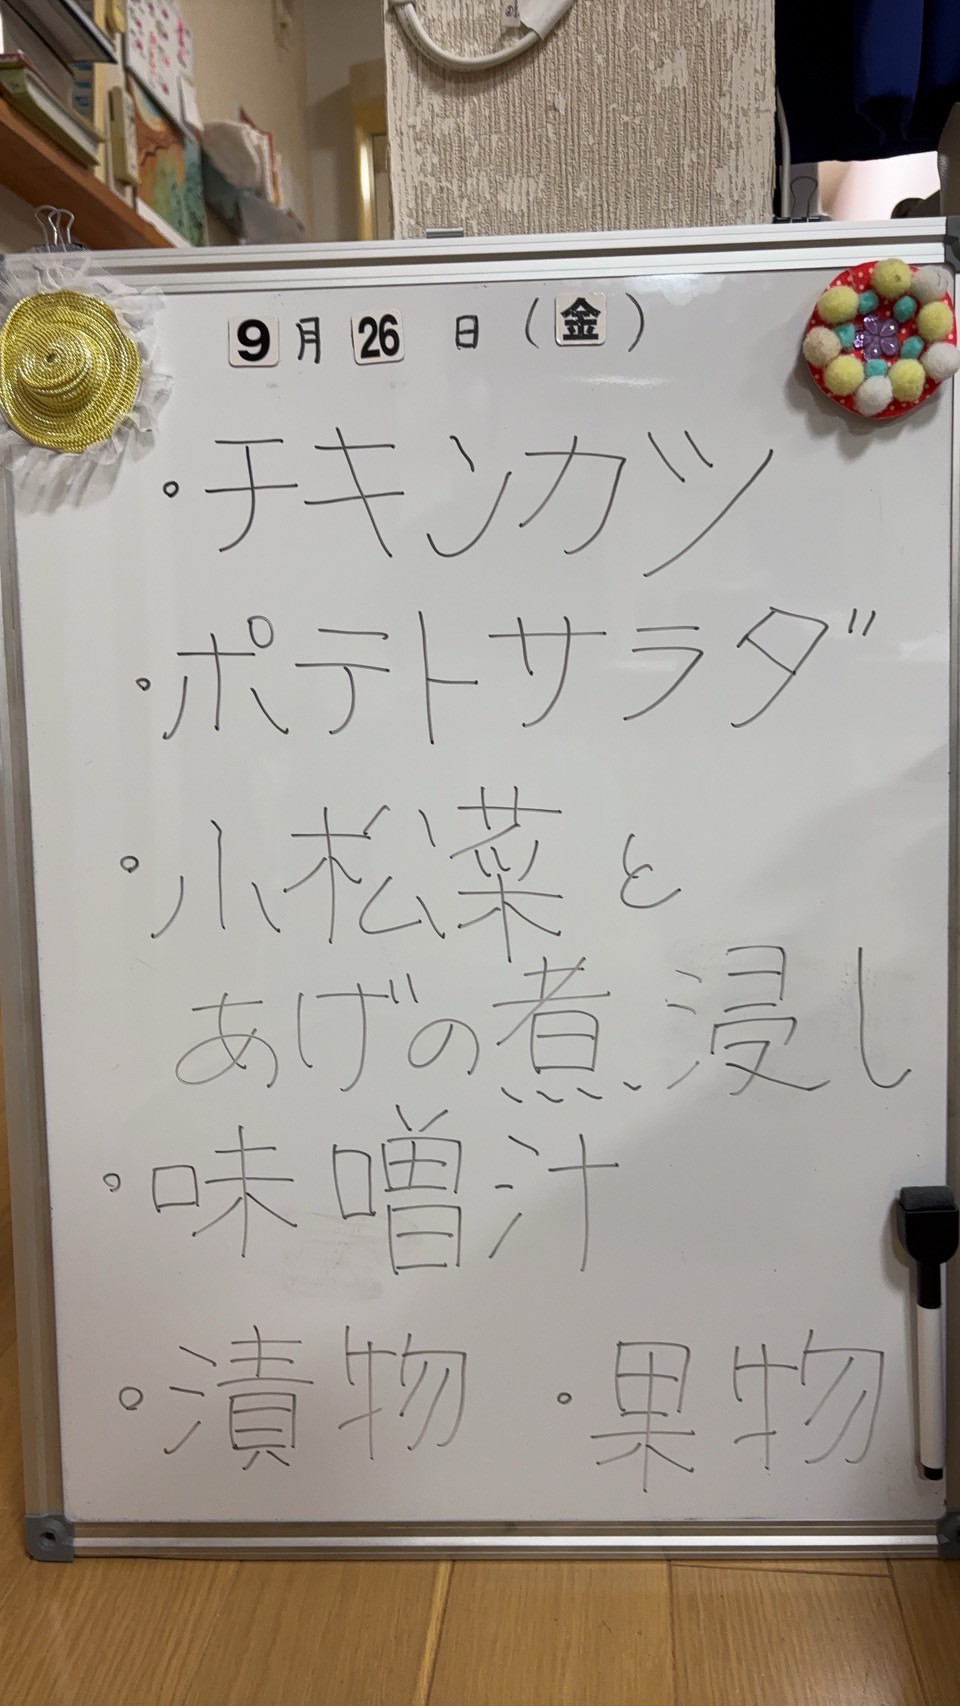 9月26日(金)
・チキンカツ
・ポテトサラダ
・小松菜と
あげの煮浸し
・味噌汁
・漬物 ・果物